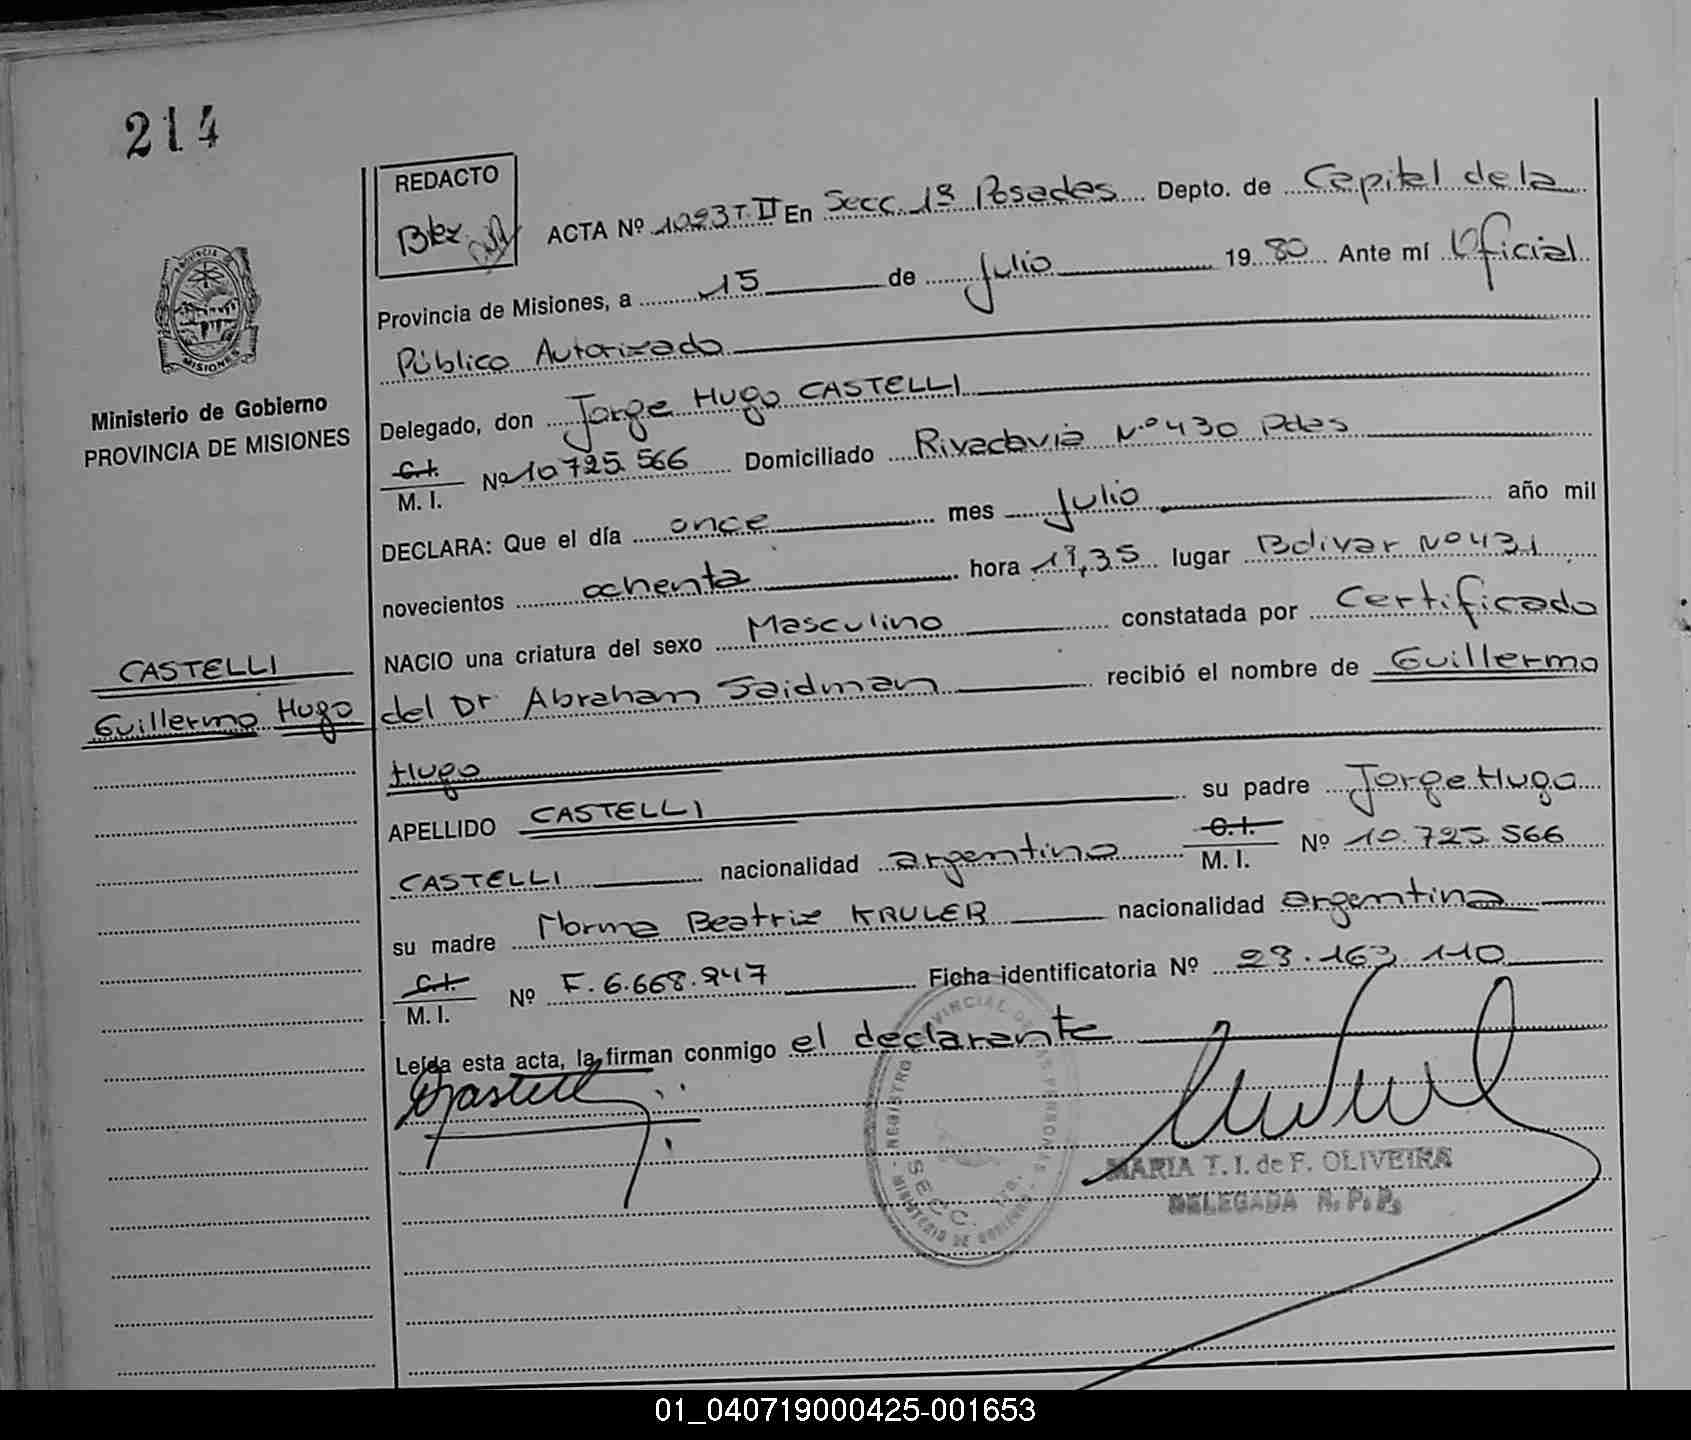 214
REDACTO
ACTA Nº 1093 T. II En Secc. 1ª Posadas Depto. de Capital de la
Provincia de Misiones, a 15 de Julio 19 80 Ante mí Oficial
Público Autorizado
PROVINCIA
MISIONES
Ministerio de Gobierno
PROVINCIA DE MISIONES
Delegado, don Jorge Hugo CASTELLI
C.I. M. I. Nº 10.725.566 Domiciliado Rivadavia Nº 430 Pdas
DECLARA: Que el día once mes Julio año mil
novecientos ochenta hora 17,35 lugar Bolivar Nº 431
NACIO una criatura del sexo Masculino constatada por Certificado
CASTELLI
Guillermo Hugo
del Dr Abraham Saidman recibió el nombre de Guillermo
Hugo
APELLIDO CASTELLI su padre Jorge Hugo
CASTELLI nacionalidad argentino C.I. M. I. Nº 10.725.566
su madre Norma Beatriz KRULER nacionalidad argentina
C.I. M. I. Nº F. 6.668.947 Ficha identificatoria Nº 28.163.110
Leída esta acta, la firman conmigo el declarante
Castelli
MARIA T. I. de F. OLIVEIRA
DELEGADA R. P. P.
MINISTERIO DE GOBIERNO - REGISTRO PROVINCIAL DE LAS PERSONAS
SECC. 1ra.
01_040719000425-001653